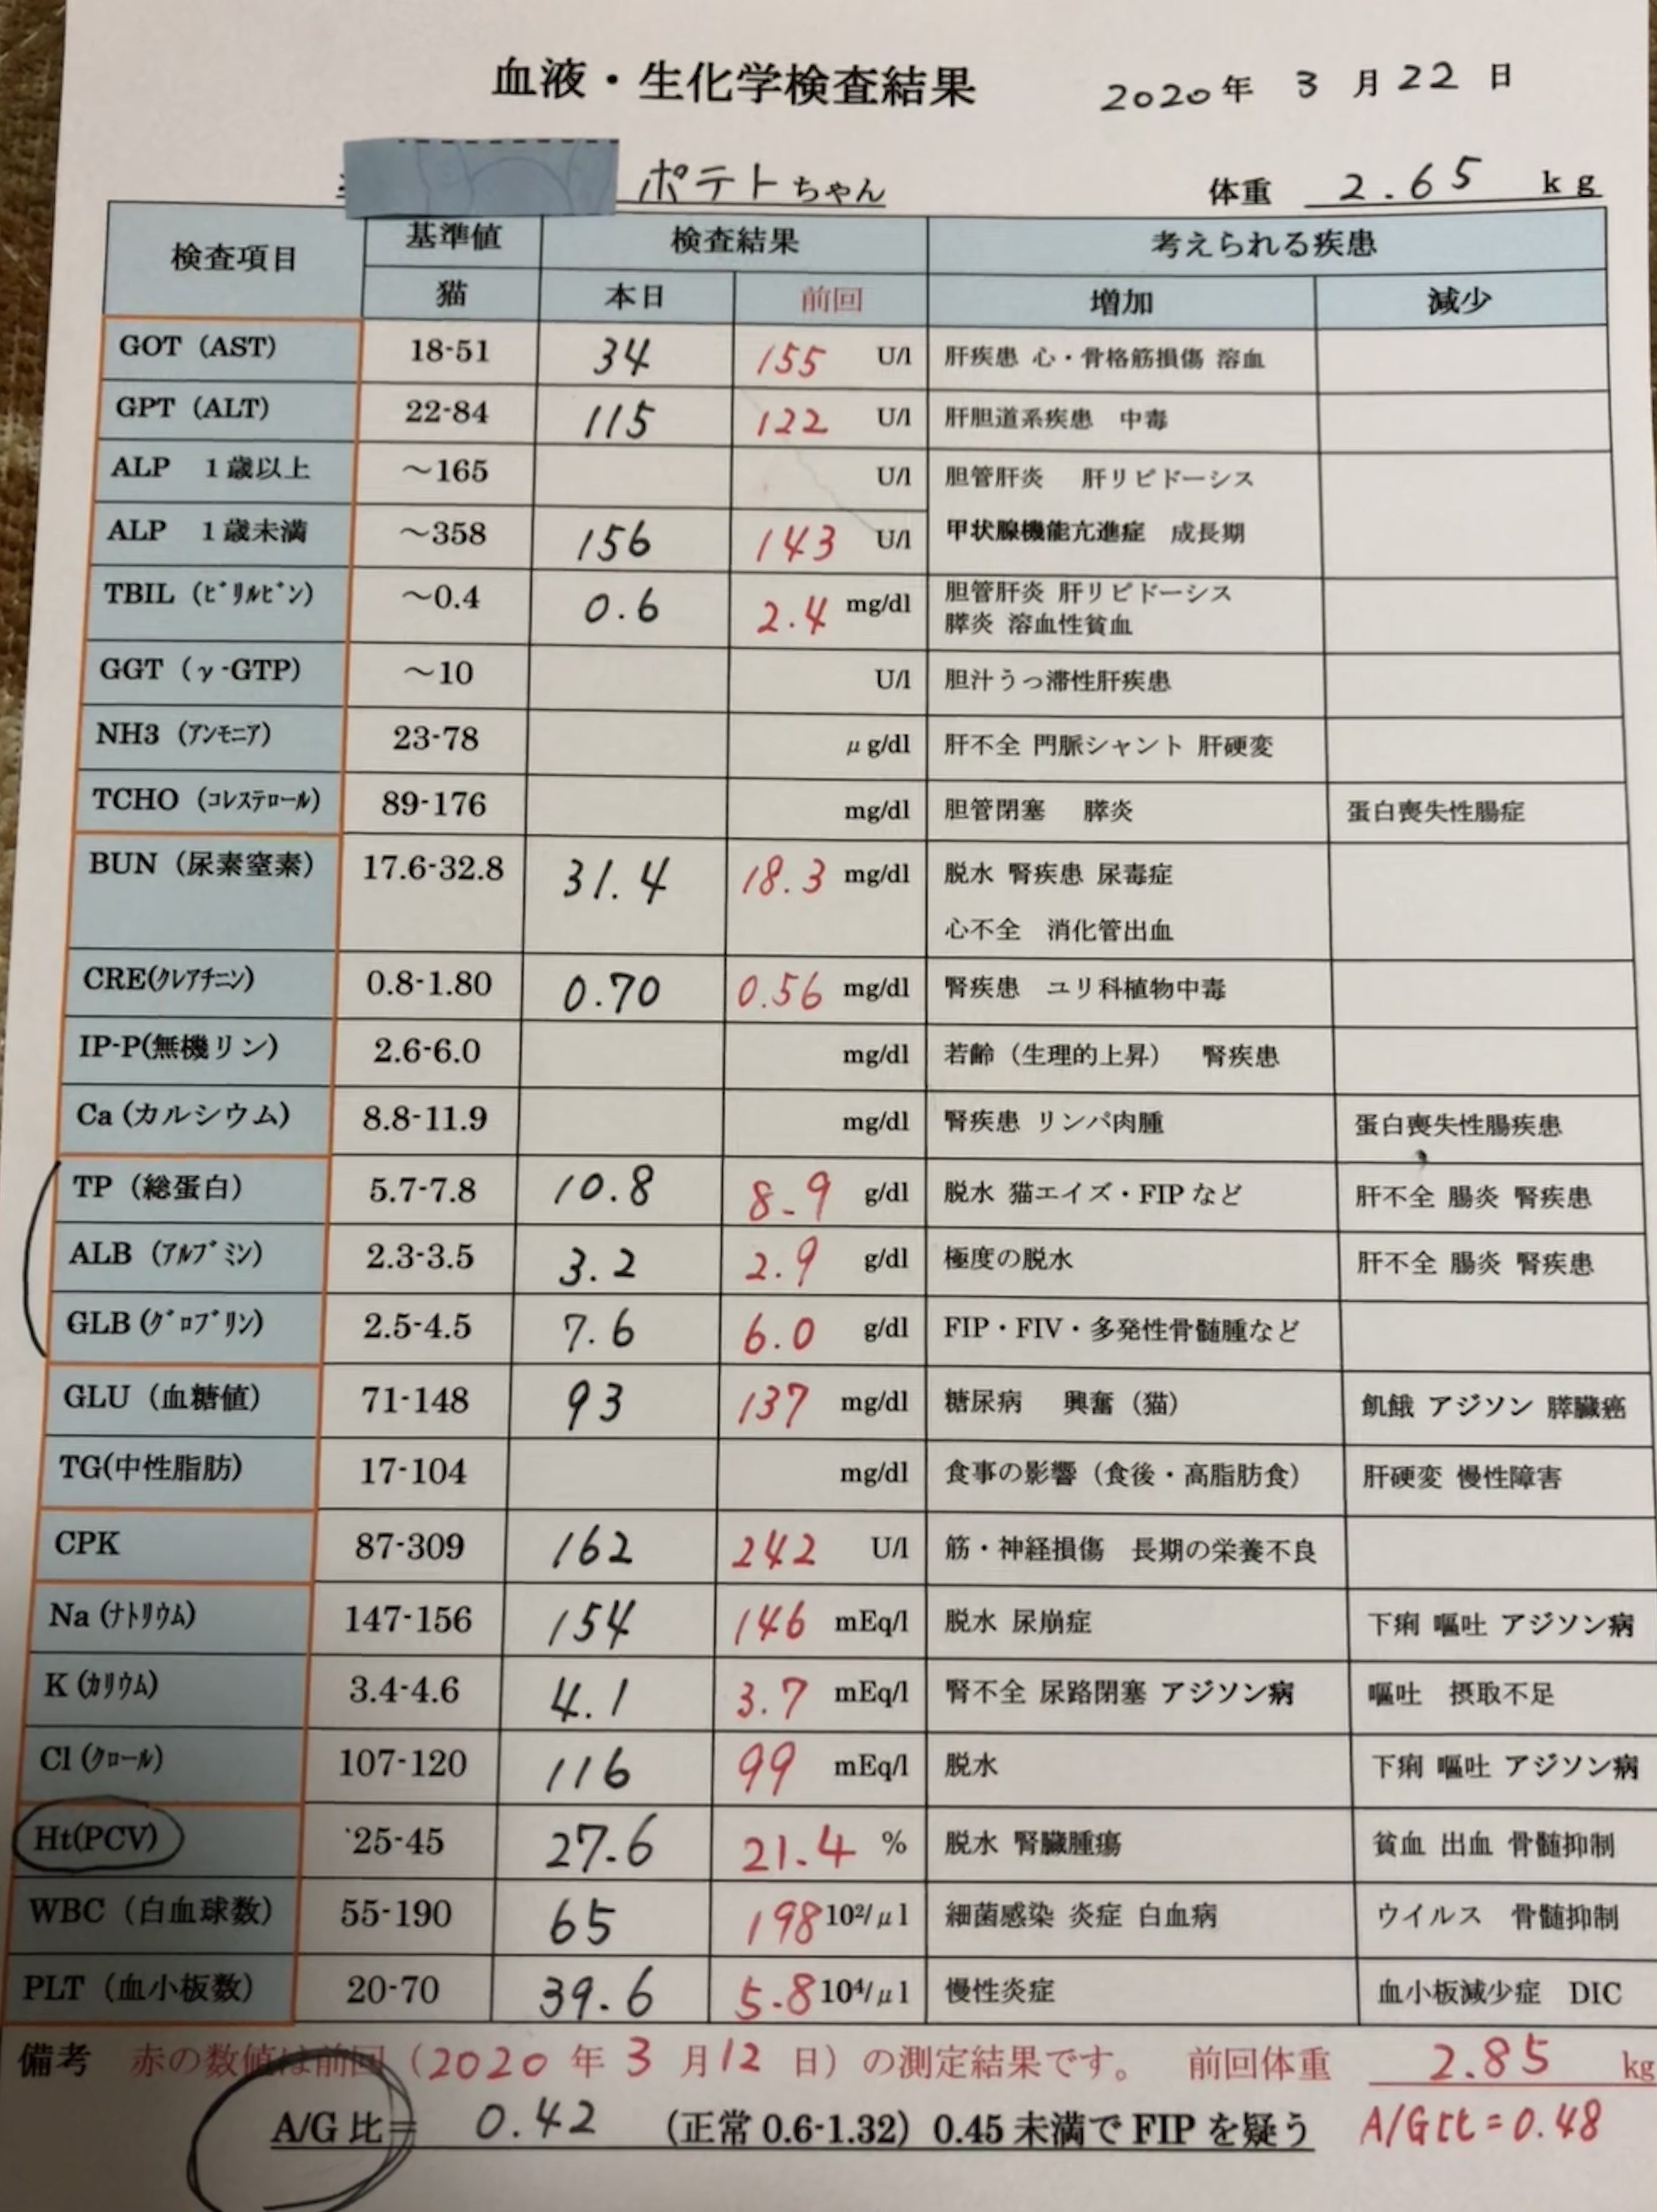 血液・生化学検査結果 2020年 3月22日
ポテトちゃん 体重 2.65 kg
検査項目 基準値 検査結果 考えられる疾患
猫 本日 前回 増加 減少
GOT (AST) 18-51 34 155 U/l 肝疾患 心・骨格筋損傷 溶血
GPT (ALT) 22-84 115 122 U/l 肝胆道系疾患 中毒
ALP 1歳以上 ～165 U/l 胆管肝炎 肝リピドーシス
ALP 1歳未満 ～358 156 143 U/l 甲状腺機能亢進症 成長期
TBIL (ﾋﾞﾘﾙﾋﾞﾝ) ～0.4 0.6 2.4 mg/dl 胆管肝炎 肝リピドーシス
膵炎 溶血性貧血
GGT (γ-GTP) ～10 U/l 胆汁うっ滞性肝疾患
NH3 (ｱﾝﾓﾆｱ) 23-78 μg/dl 肝不全 門脈シャント 肝硬変
TCHO (ｺﾚｽﾃﾛｰﾙ) 89-176 mg/dl 胆管閉塞 膵炎 蛋白喪失性腸症
BUN (尿素窒素) 17.6-32.8 31.4 18.3 mg/dl 脱水 腎疾患 尿毒症
心不全 消化管出血
CRE(ｸﾚｱﾁﾆﾝ) 0.8-1.80 0.70 0.56 mg/dl 腎疾患 ユリ科植物中毒
IP-P(無機リン) 2.6-6.0 mg/dl 若齢（生理的上昇） 腎疾患
Ca (カルシウム) 8.8-11.9 mg/dl 腎疾患 リンパ肉腫 蛋白喪失性腸疾患
TP (総蛋白) 5.7-7.8 10.8 8.9 g/dl 脱水 猫エイズ・FIPなど 肝不全 腸炎 腎疾患
ALB (ｱﾙﾌﾞﾐﾝ) 2.3-3.5 3.2 2.9 g/dl 極度の脱水 肝不全 腸炎 腎疾患
GLB (ｸﾞﾛﾌﾞﾘﾝ) 2.5-4.5 7.6 6.0 g/dl FIP・FIV・多発性骨髄腫など
GLU (血糖値) 71-148 93 137 mg/dl 糖尿病 興奮（猫） 飢餓 アジソン 膵臓癌
TG(中性脂肪) 17-104 mg/dl 食事の影響（食後・高脂肪食） 肝硬変 慢性障害
CPK 87-309 162 242 U/l 筋・神経損傷 長期の栄養不良
Na (ﾅﾄﾘｳﾑ) 147-156 154 146 mEq/l 脱水 尿崩症 下痢 嘔吐 アジソン病
K (ｶﾘｳﾑ) 3.4-4.6 4.1 3.7 mEq/l 腎不全 尿路閉塞 アジソン病 嘔吐 摂取不足
Cl (ｸﾛｰﾙ) 107-120 116 99 mEq/l 脱水 下痢 嘔吐 アジソン病
Ht(PCV) 25-45 27.6 21.4 % 脱水 腎臓腫瘍 貧血 出血 骨髄抑制
WBC (白血球数) 55-190 65 198 10²/μl 細菌感染 炎症 白血病 ウイルス 骨髄抑制
PLT (血小板数) 20-70 39.6 5.8 10⁴/μl 慢性炎症 血小板減少症 DIC
備考 赤の数値は前回（2020年3月12日）の測定結果です。 前回体重 2.85 kg
A/G比= 0.42 （正常0.6-1.32）0.45未満でFIPを疑う A/G比=0.48